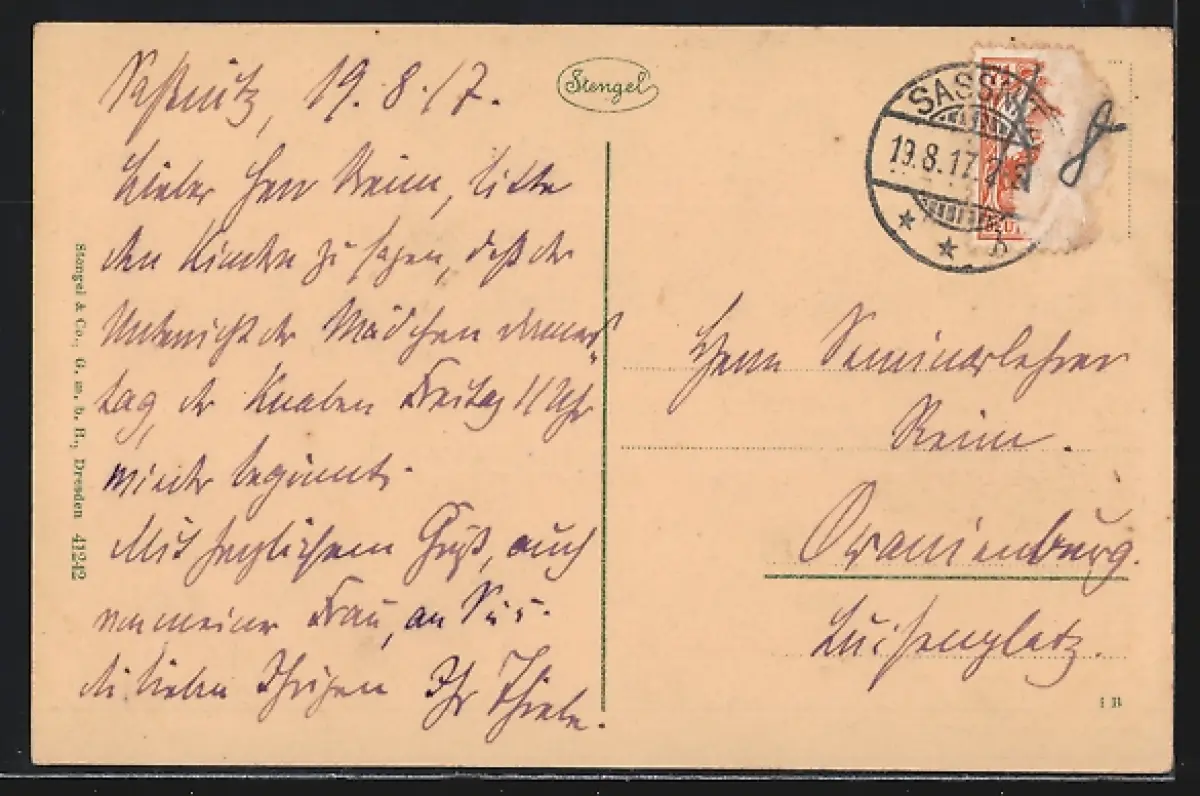 Saßnitz, 19.8.17.
Lieber Herr Reim, bitte
den Kindern zu sagen, daß der
Unterricht der Mädchen Donners-
tag, der Knaben Freitag 11 Uhr
wieder beginnt.
Mit herzlichem Gruß, auch
von meiner Frau, an Sie u.
die lieben Ihrigen Ihr Thiele.
Stengel
Stengel & Co., G. m. b. H., Dresden 41242
SASSN
19.8.17.
* * b
8
Herrn Seminarlehrer
Reim.
Oranienburg.
Luisenplatz.
1 B